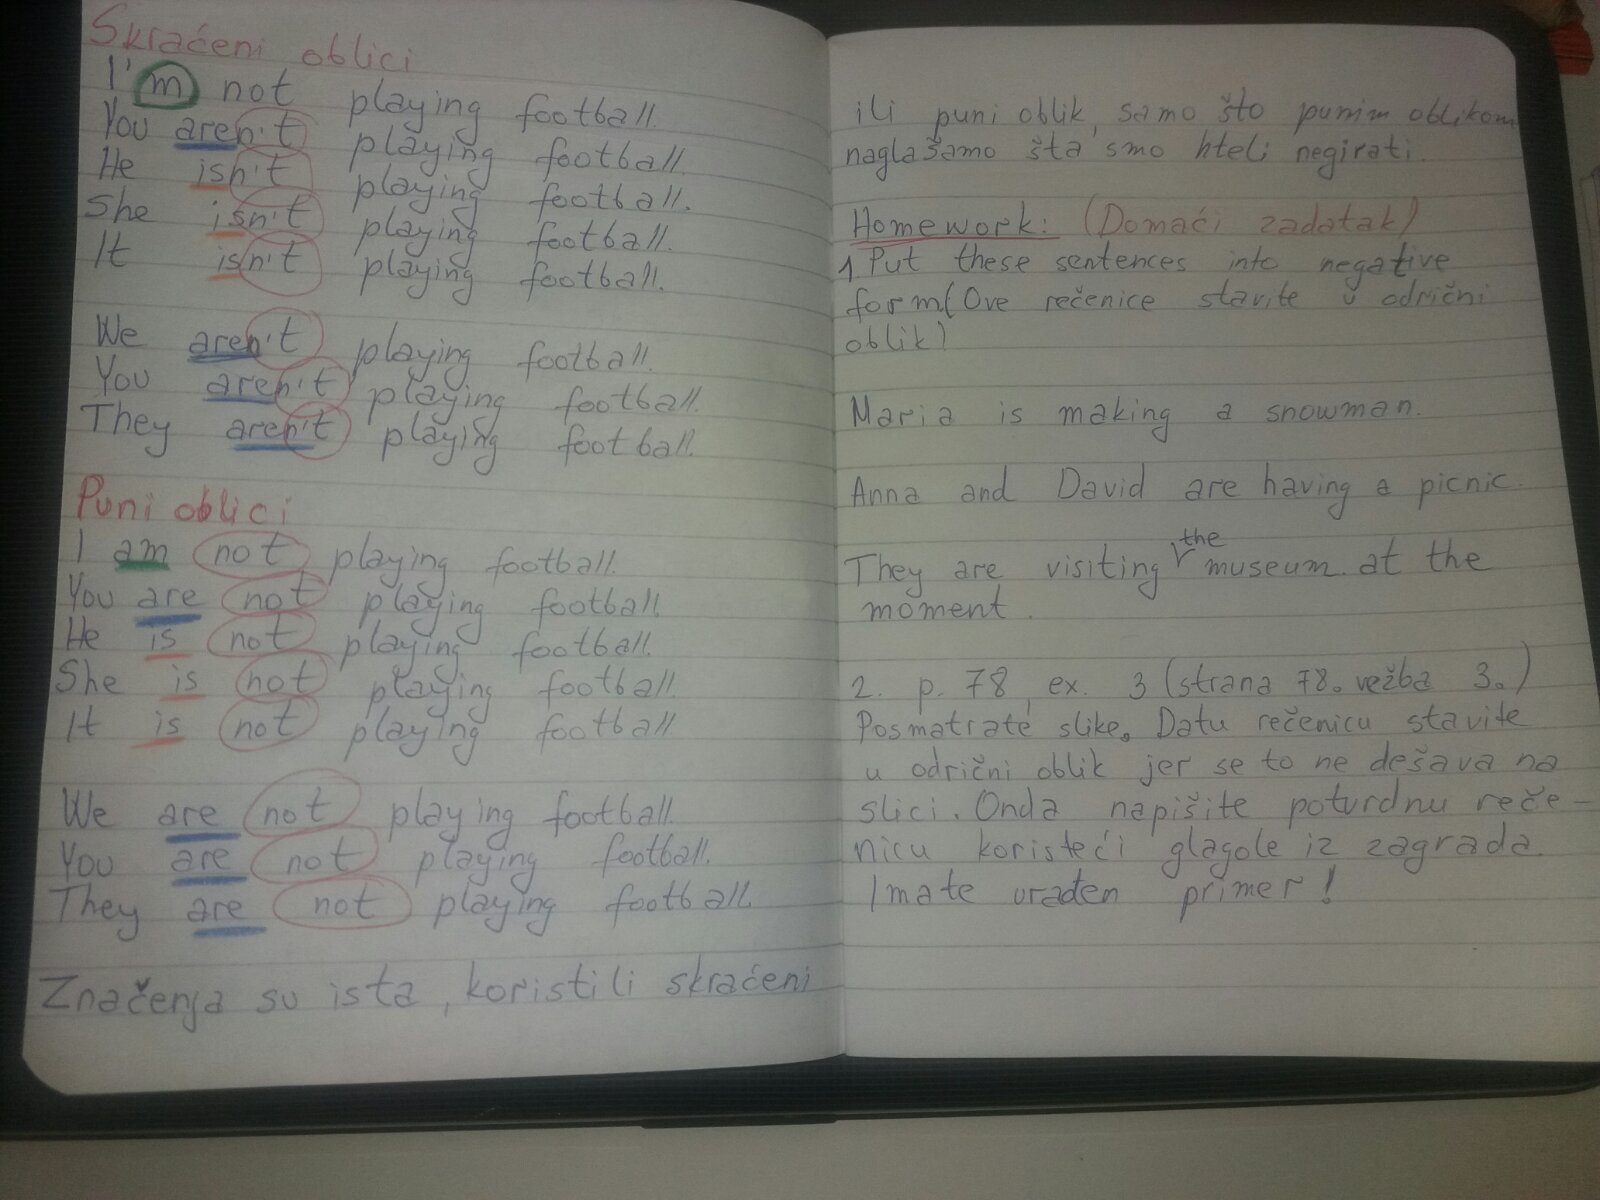 Skraćeni oblici
I'm not playing football.
You aren't playing football.
He isn't playing football.
She isn't playing football.
It isn't playing football.
We aren't playing football.
You aren't playing football.
They aren't playing football.
Puni oblici
I am not playing football.
You are not playing football.
He is not playing football.
She is not playing football.
It is not playing football.
We are not playing football.
You are not playing football.
They are not playing football.
Značenja su ista, koristili skraćeni
ili puni oblik, samo što punim oblikom
naglašamo šta smo hteli negirati.
Homework: (Domaći zadatak)
1. Put these sentences into negative
form (Ove rečenice stavite u odrični
oblik)
Maria is making a snowman.
Anna and David are having a picnic.
They are visiting the museum at the
moment.
2. p. 78, ex. 3 (strana 78. vežba 3.)
Posmatrate slike. Datu rečenicu stavite
u odrični oblik jer se to ne dešava na
slici. Onda napišite potvrdnu reče-
nicu koristeći glagole iz zagrada.
Imate urađen primer!